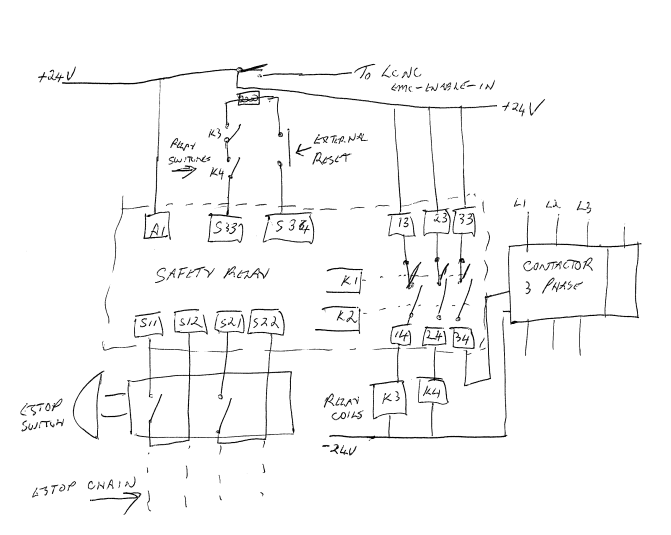 +24V
TO LCNC
EMC-ENABLE-IN
+24V
K3
RELAY
SWITCHES
K4
EXTERNAL
RESET
A1
S33
S34
13
23
33
L1
L2
L3
SAFETY RELAY
K1
K2
CONTACTOR
3 PHASE
S11
S12
S21
S22
14
24
34
ESTOP
SWITCH
RELAY
COILS
K3
K4
-24V
ESTOP CHAIN